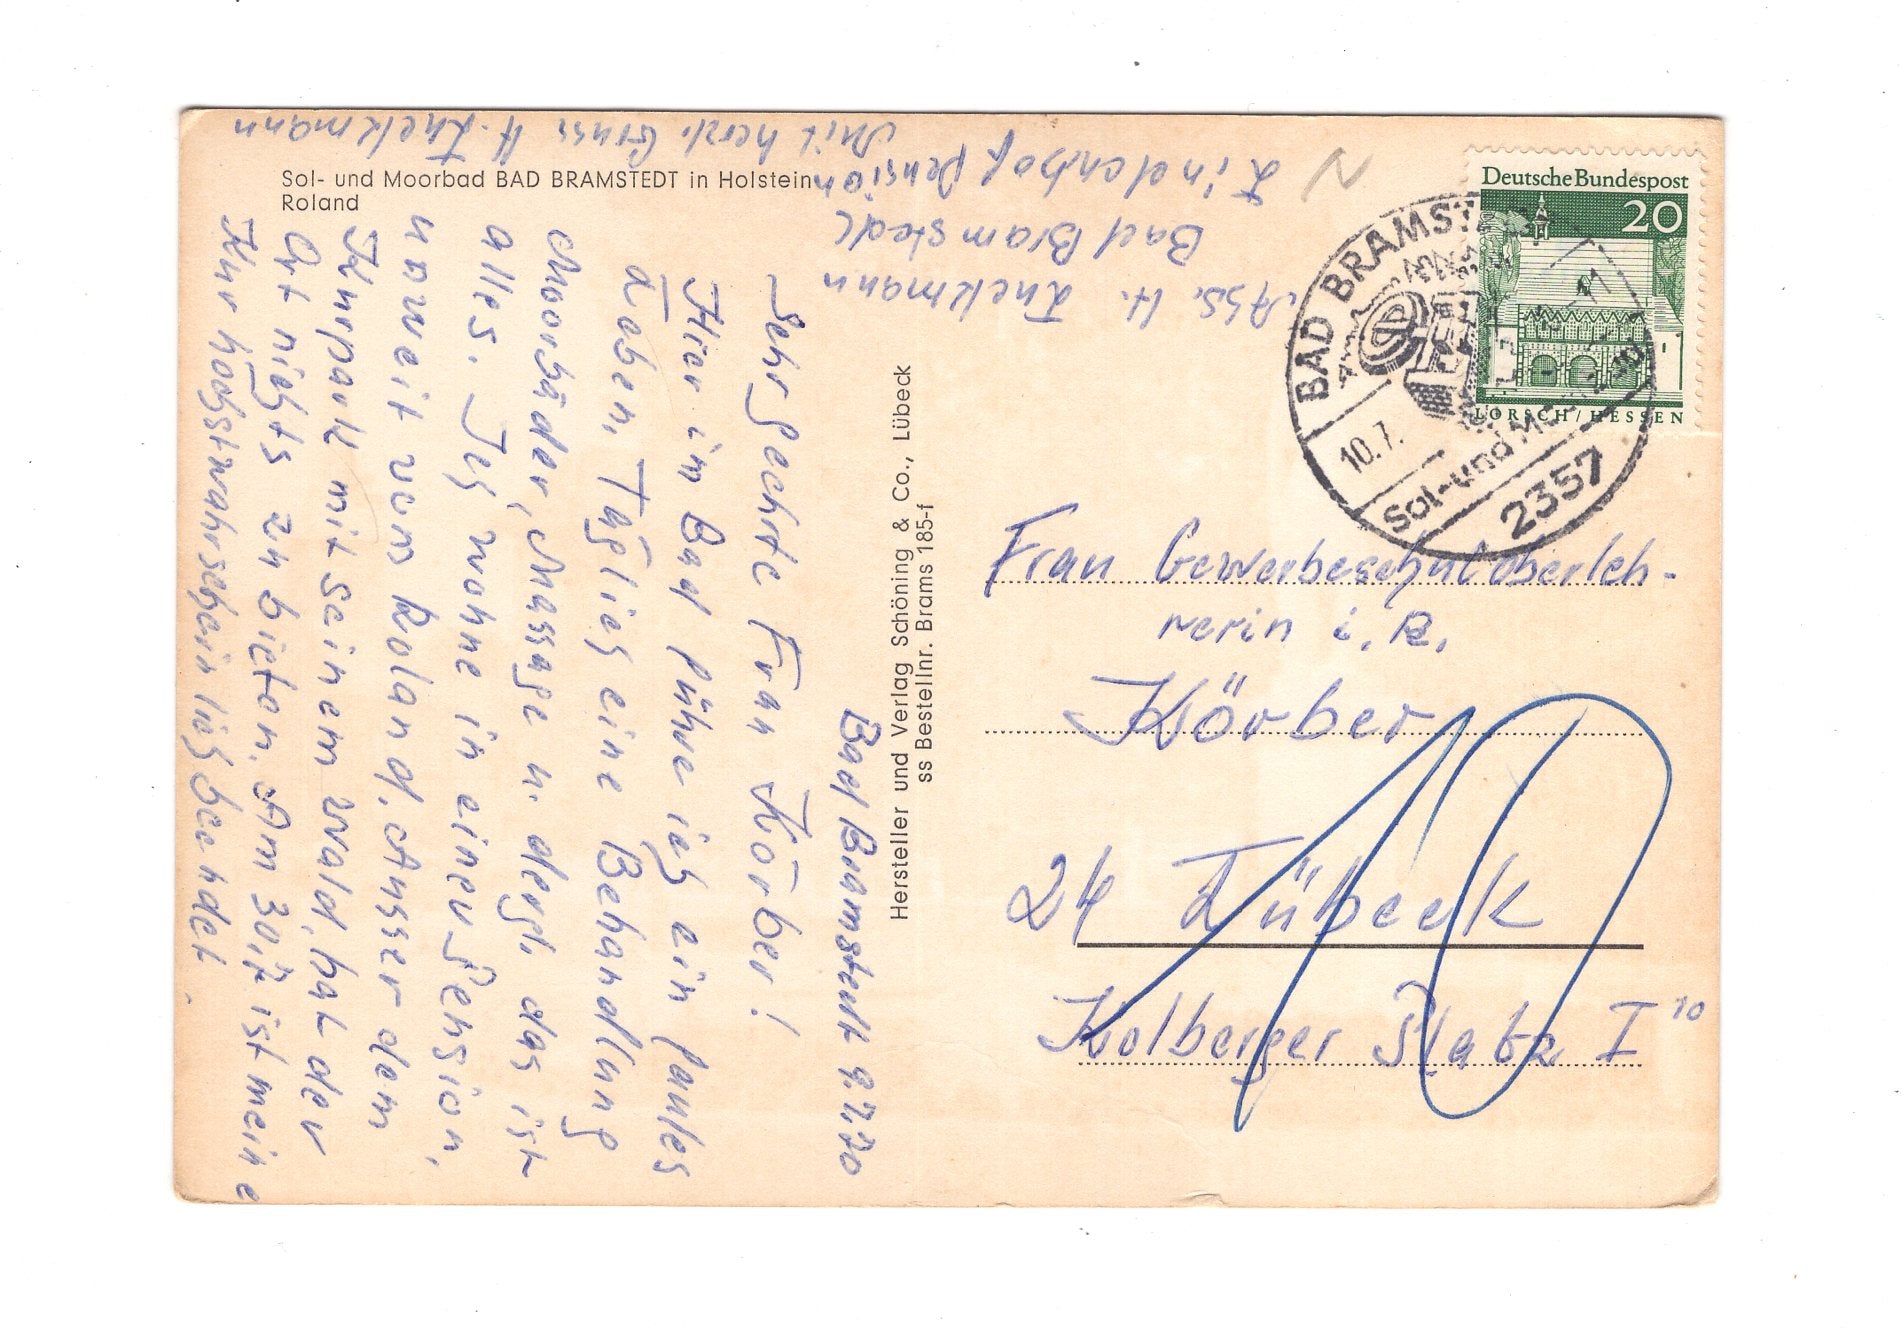 Sol- und Moorbad BAD BRAMSTEDT in Holstein
Roland
Bad Bramstedt 9.7.70
Sehr geehrte Frau Körber!
Hier in Bad führe ich ein faules
Leben. Täglich eine Behandlung
Moorbäder, Massage u. dergl. das ist
alles. Ich wohne in einer Pension,
unweit vom Roland. Ausser dem
Kurpark mit seinem Wald, hat der
Ort nichts zu bieten. Am 30.7. ist meine
Kur höchstwahrscheinlich beendet.
Mit herzl. Gruss H. Lückmann
Abs. H. Lückmann
Bad Bramstedt
Lindenhof Pension
Hersteller und Verlag Schöning & Co., Lübeck
ss Bestellnr. Brams 185-f
Deutsche Bundespost
20
LORSCH/HESSEN
BAD BRAMST
10.7.
Sol- und Mo
2357
Frau Gewerbeschuloberleh-
rerin i. R.
Körber
24 Lübeck
Kolberger Platz I
10
10